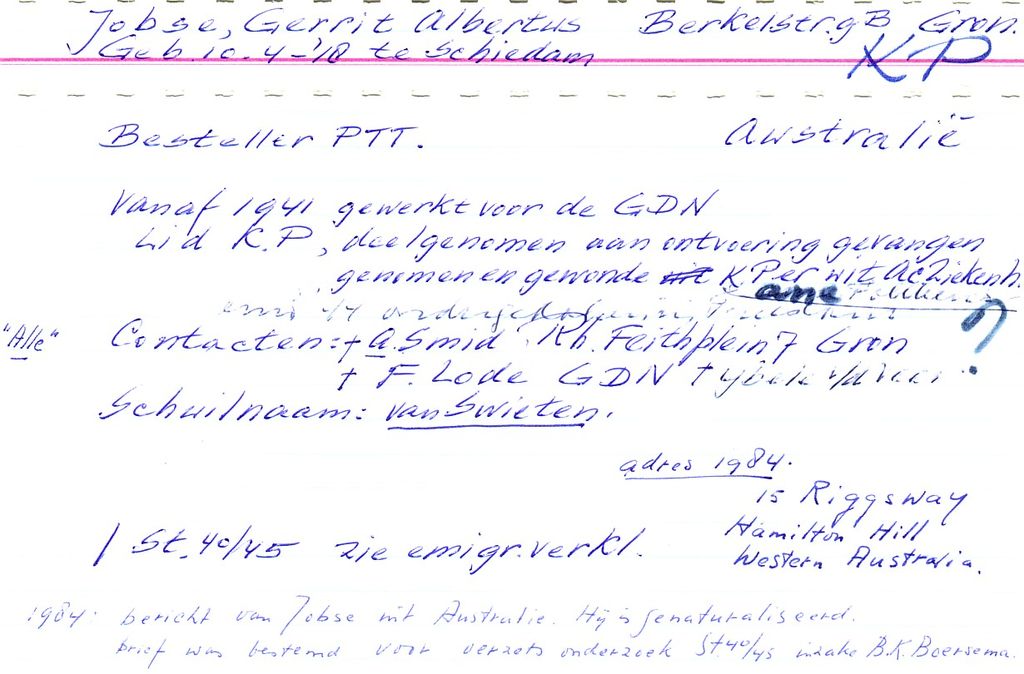 Jobse, Gerrit Albertus Berkelstr. 9B Gron.
Geb. 10-4-'18 te Schiedam
KP
Besteller PTT. Australië
Vanaf 1941 gewerkt voor de GDN
Lid K.P, deelgenomen aan ontvoering gevangen
genomen en gewonde K.P er uit Ac Ziekenh.
"Alle" Contacten: + A. Smid Rh. Feithplein 7 Gron ?
+ F. Lode GDN +
Schuilnaam: van Swieten.
adres 1984.
15 Riggsway
Hamilton Hill
Western Australia.
/ St. 40/45 zie emigr. verkl.
1984: bericht van Jobse uit Australie. Hij is genaturaliseerd.
brief was bestemd voor verzets onderzoek St 40/45 inzake B.K. Boersema.